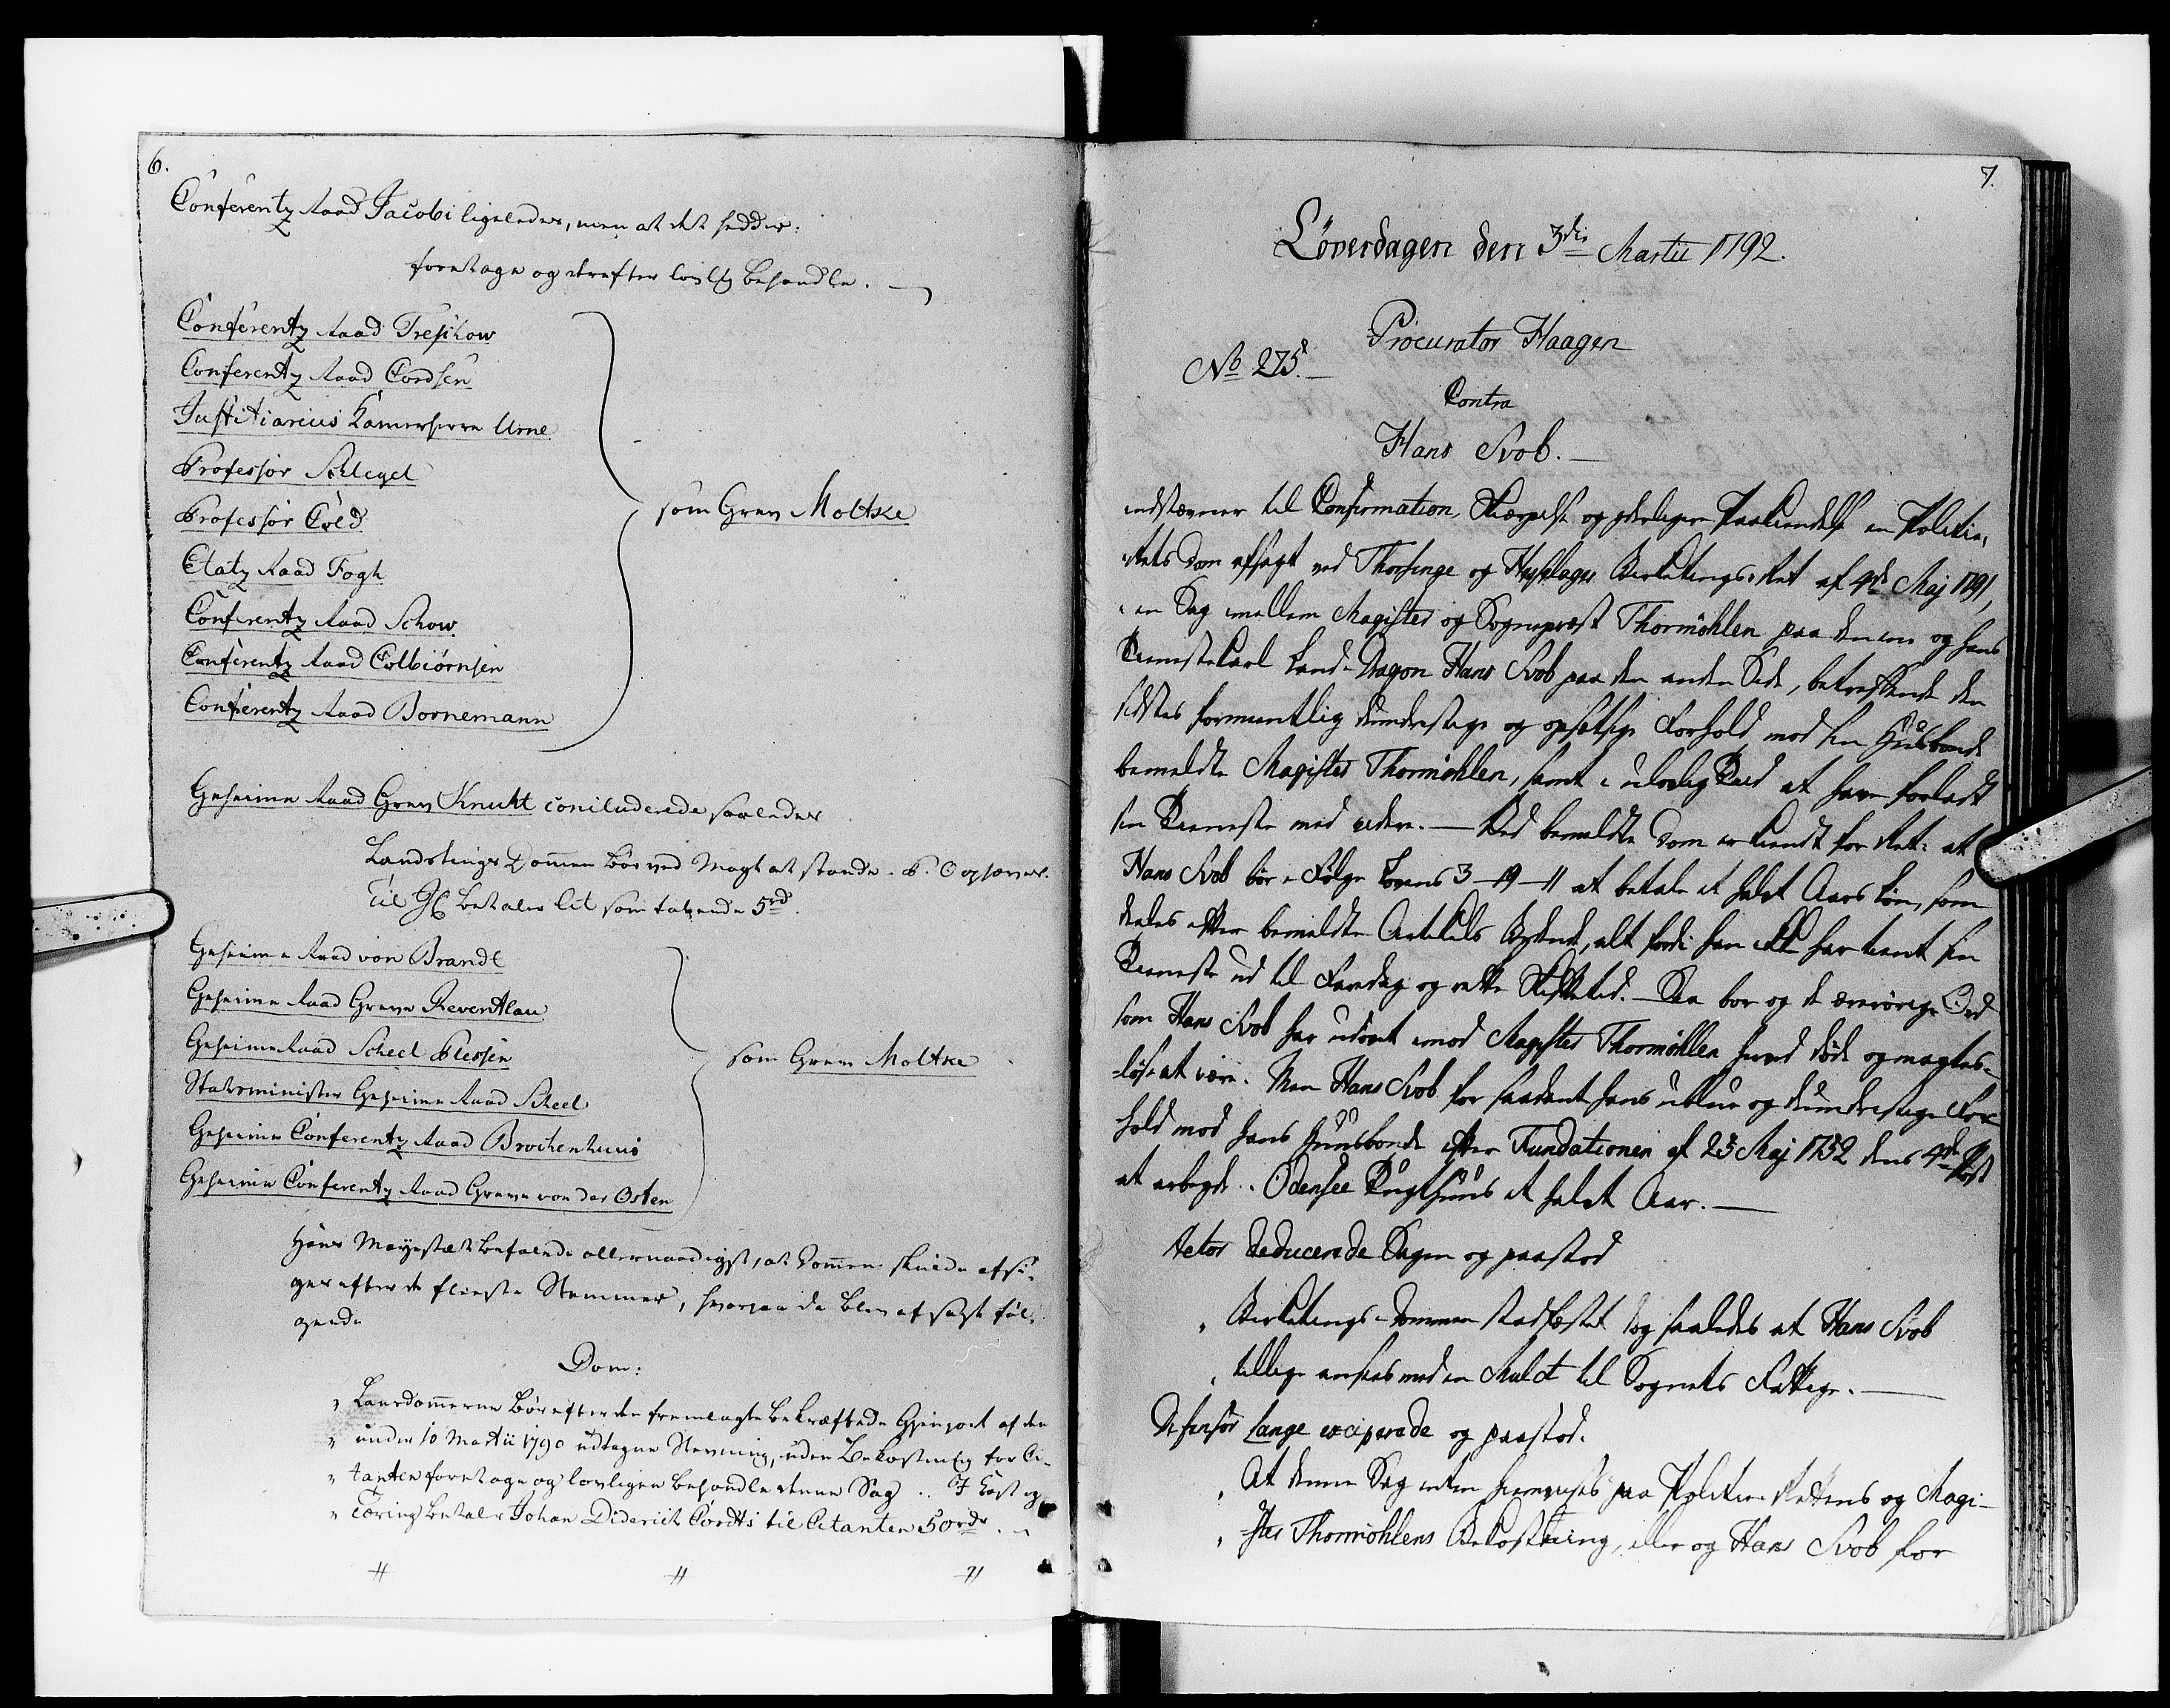 6.
Conferentz Raad Jacobi ligeledes, men at det hedder:
foretage og derefter lovlig behandle.
Conferentz Raad Treschow
Conferentz Raad Cordsen
Justitiarius Kamerherre Urne
Professor Schlegel
Professor Cold
Etatz Raad Fogh
Conferentz Raad Schow
Conferentz Raad Colbiørnsen
Conferentz Raad Bornemann
som Grev Moltke
Geheime Raad Grev Knuht concluderede saaledes
Landstings Dommen bør ved Magt at stande. P. O ophæves.
Til JC betaler Cit som tabende 5rd.
Geheime Raad von Brandt
Geheime Raad Greve Reventlau
Geheime Raad Scheel Plessen
Statsminister Geheime Raad Scheel
Geheime Conferentz Raad Brockenhuus
Geheime Conferentz Raad Greve von der Osten
som Greve Moltke
Hans Mayestæt befalede allernaadigst, at Dommen skulde afsi-
ges efter de fleeste Stemmer, hvorpaa da blev afsagt føl-
gende
Dom:
„ Laurdommerne bør efter den fremlagte bekræftede Gjenpart af den
„ under 10 Martii 1790 udtagne Stevning, uden Bekostning for Ci-
„ tanten foretage og lovligen behandle denne Sag .. I Kost og
„ Tæring betaler Johan Diderich Cordts til Citanten 50 rdr.
7.
Löverdagen den 3die Martii 1792.
Procurator Haagen
No 275.
Contra
Hans Svob.
indstævner til Confirmation, Skiærpelse og yderligere Paakiendelse en Politie-
Rets Dom afsagt ved Thorseinge og Birketings Ret af 4de Maj 1791,
i en Sag imellem Magister og Sognepræst Thormöhlen paa den ene og hans
Tienestekarl Land-Dragon Hans Svob paa den anden Side, betreffende den
sidstes formeentlig studdrestige og opsætsige Forhold mod sin Huusbonde
bemeldte Magister Thormöhlen, samt i ulovlig Tid at have forladt
sin Tieneste med videre. — Ved bemeldte Dom er kiendt for Ret: at
Hans Svob bør i Følge Lovens 3-19-11 at betale et halvt Aars Løn, som
deeles efter bemeldte Artikels Bydende, alt fordi han ikke har tient sin
Tieneste ud til Faredag og rette Skiftetid. — Saa bør og de ærerørige Ord
som Hans Svob har udøst imod Magister Thormöhlen herved døde og magtes-
løse at være. Men Hans Svob for saadant hans utilbørlige og Forhold
hold mod hans Huusbonde efter Fundationen af 23 Maj 1732 dens 4de Post
at arbeyde i Odensee Tugthuus et halvt Aar.
Actor deducerede Sagen og paastod
„ Birketings-Dommen stadfæstet dog saaledes at Hans Svob
„ tillige ansees med en Mulct til Sognets Fattige.
Defensor Lange exciperede og paastod:
„ At denne Sag enten hiemvises paa Politie-Rettens og Magi-
„ ster Thormöhlens Bekostning, eller og Hans Svob for